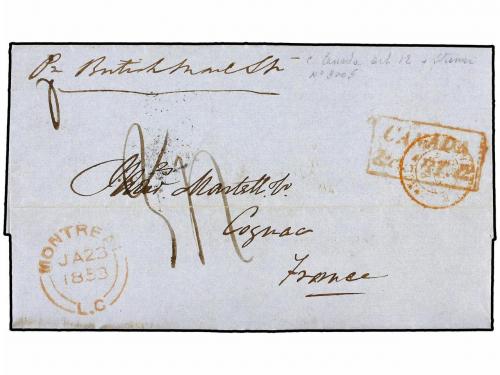 Pr British Mail Str
c. Canada art 12 + Steamer
Nº 3005
CANADA
&c. ART. 12
Messrs Martell Co.
Cognac
France
MONTREAL
JA 23
1853
L.C